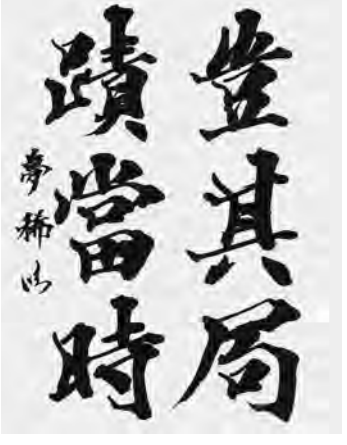 豈其局
蹟當時
夢稀